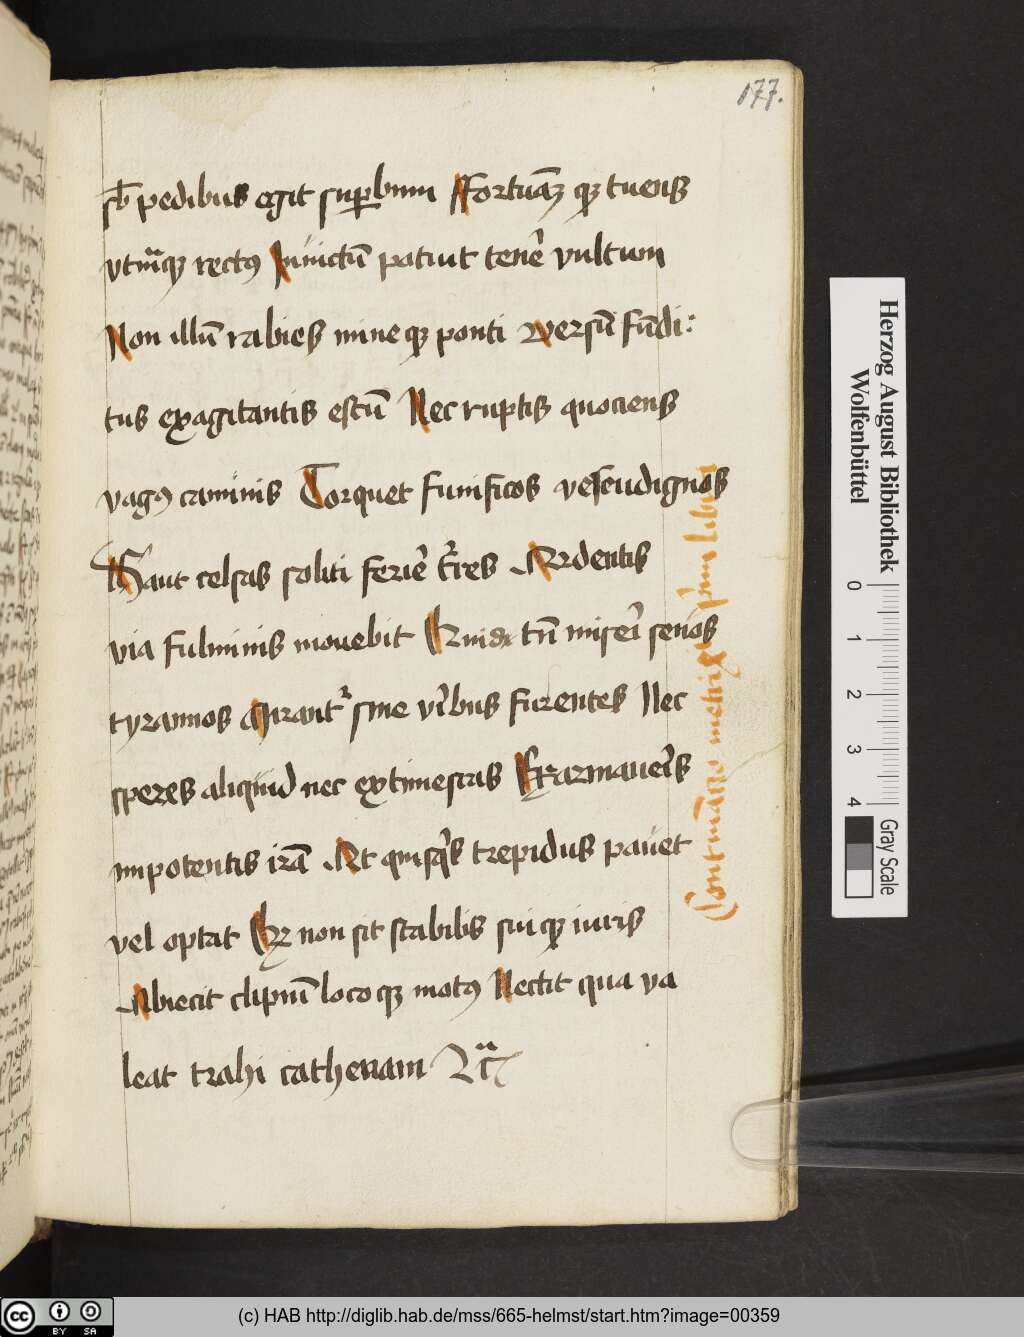 177.
sb̄ pedibus egit suꝑbum Ffortuāꝫ qꝫ tuens
vtrāqꝫ rectꝰ Inuictū potuit tenē vultum
Non illū rabies mine qꝫ ponti versū fūdi:
tus exagitantis estū Nec ruptis quociens
vagꝰ caminis Torquet fumificos veseudignos
Haut celsas soliti feriē t̄res Ardentis
via fulminis mouebit Quid tn̄ miseī seuos
tyrannos mirant᷑ sine vībus furentes Nec
speres aliquid nec extimescas Exarmaueīs
impotentis irā At quisqꝭs trepidus pauet
vel optat Qꝫ non sit stabilis sui qꝫ iuris
Abiecit clipeū loco qꝫ motꝰ Nectit qua va
leat trahi cathenam ⁊c̄
Herzog August Bibliothek
Wolfenbüttel
0 1 2 3 4
Gray Scale
cc BY SA
(c) HAB http://diglib.hab.de/mss/665-helmst/start.htm?image=00359